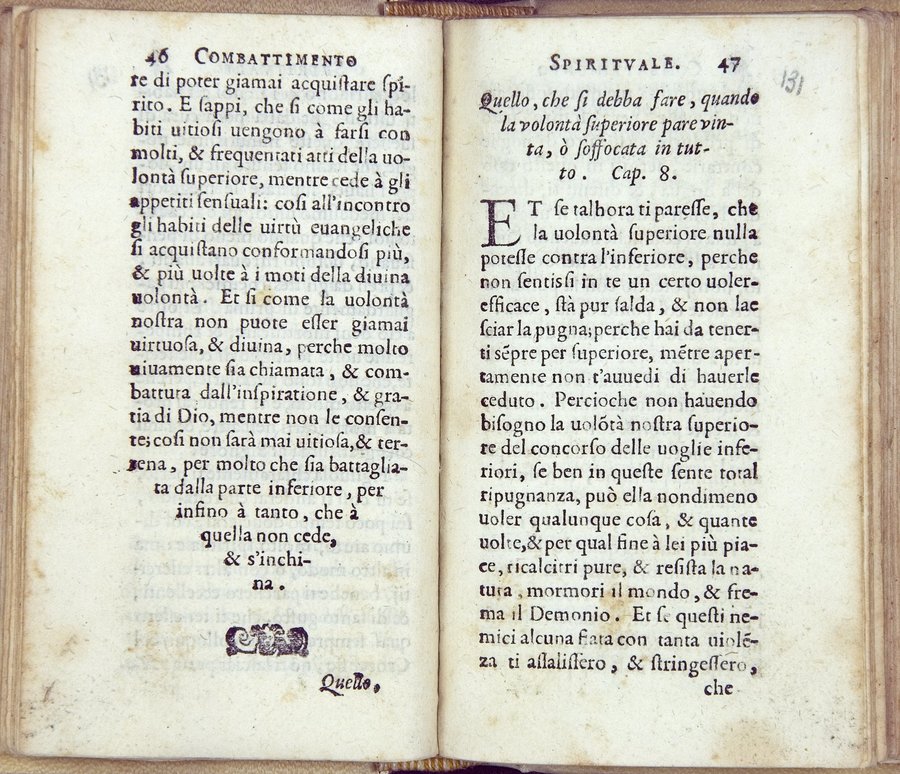 46 COMBATTIMENTO
re di poter giamai acquiſtare ſpi-
rito. E ſappi, che ſi come gli ha-
biti uitioſi uengono à farſi con
molti, & frequentati atti della uo-
lontà ſuperiore, mentre cede à gli
appetiti ſenſuali: coſi all'incontro
gli habiti delle uirtù euangeliche
ſi acquiſtano conformandoſi più,
& più uolte à i moti della diuina
uolontà. Et ſi come la uolontà
noſtra non puote eſſer giamai
uirtuoſa, & diuina, perche molto
uiuamente ſia chiamata, & com-
battura dall'inſpiratione, & gra-
tia di Dio, mentre non le conſen-
te; coſi non ſarà mai uitioſa, & ter-
rena, per molto che ſia battaglia-
ta dalla parte inferiore, per
infino à tanto, che à
quella non cede,
& s'inchi-
na.
Quello,
SPIRITVALE. 47
131
Quello, che ſi debba fare, quando
la volontà ſuperiore pare vin-
ta, ò ſoffocata in tut-
to. Cap. 8.
ET ſe talhora ti pareſſe, che
la uolontà ſuperiore nulla
poteſſe contra l'inferiore, perche
non ſentiſſi in te un certo uoler-
efficace, ſtà pur ſalda, & non laſ
ſciar la pugna; perche hai da tener-
ti sẽpre per ſuperiore, mẽtre aper-
tamente non t'auuedi di hauerle
ceduto. Percioche non hauendo
biſogno la uolõtà noſtra ſuperio-
re del concorſo delle uoglie infe-
riori, ſe ben in queſte ſente total
ripugnanza, può ella nondimeno
uoler qualunque coſa, & quante
uolte, & per qual fine à lei più pia-
ce, ricalcitri pure, & reſiſta la na-
tura, mormori il mondo, & fre-
ma il Demonio. Et ſe queſti ne-
mici alcuna fiata con tanta uiolẽ-
za ti aſſaliſſero, & ſtringeſſero,
che